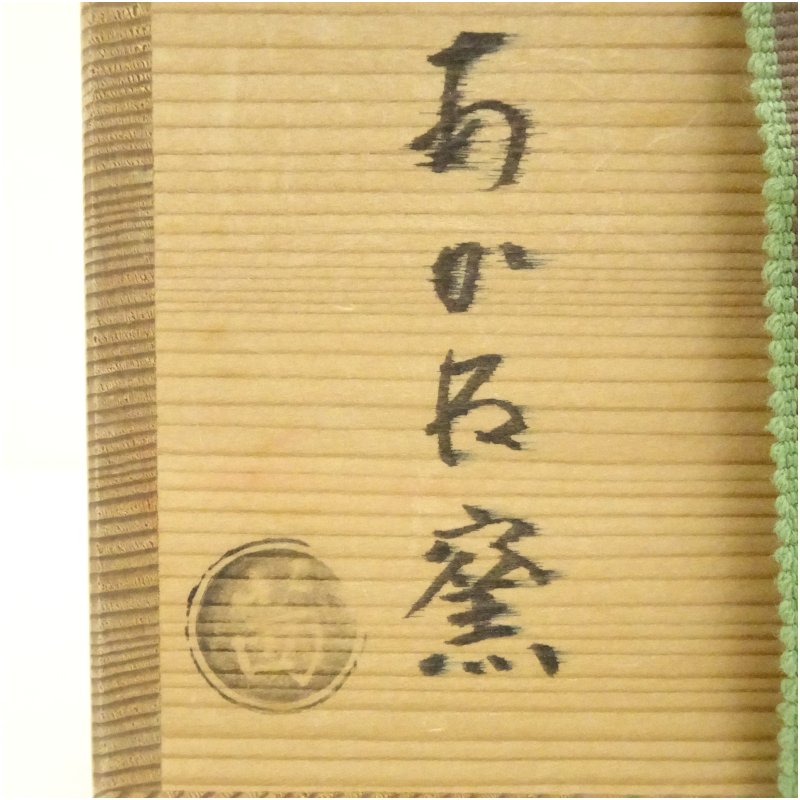 あかね窯